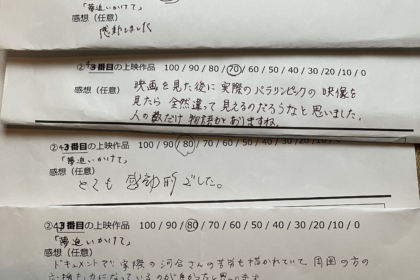 「夢追いかけて」
感想（任意）
感動しました
②4 3番目の上映作品 100 / 90 / 80 / 70 / 60 / 50 / 40 / 30 / 20 / 10 / 0
感想（任意）
映画を見た後に実際のパラリンピックの映像を
見たら全然違って見えるのだろうなと思いました。
人の数だけ物語がありますね。
②4 3番目の上映作品 100 / 90 / 80 / 70 / 60 / 50 / 40 / 30 / 20 / 10 / 0
「夢追いかけて」
感想（任意）
とても感動的でした。
②4 3番目の上映作品 100 / 90 / 80 / 70 / 60 / 50 / 40 / 30 / 20 / 10 / 0
「夢追いかけて」
感想（任意）
ドキュメントで実際の河合さんの苦労も描かれていて周囲の方の